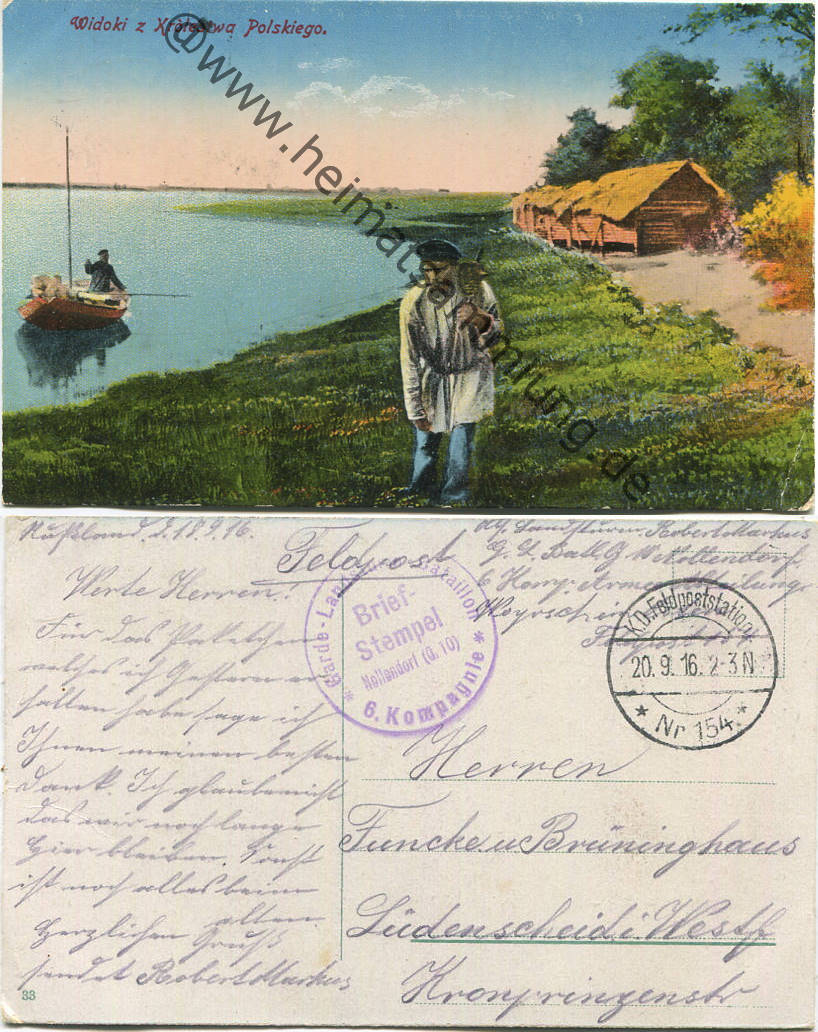 Widoki z Królestwa Polskiego.
@www.heimatsammlung.de
Rußland, d. 18.9.16.
Feldpost
Werte Herren!
Für das Paketchen
welches ich Gestern er
halten habe sage ich
Ihnen meinen besten
Dank. Ich glaube nicht
das wir noch lange
hier bleiben. Sonst
ist noch alles beim
alten
Herzlichen Gruß
sendet Robert Markus
33
Garde-Landsturm-Bataillon
Brief-
Stempel
Nollendorf (G. 10)
* 6. Kompagnie *
Landsturm. Robert Markus
G. L. Batl. Nollendorf
6 Komp. Armee Abteilung
Woyrsch
K.D. Feldpoststation
20. 9. 16. 2-3 N
* Nr 154. *
Herren
Funcke u Brüninghaus
Lüdenscheid i. Westf
Kronprinzenstr